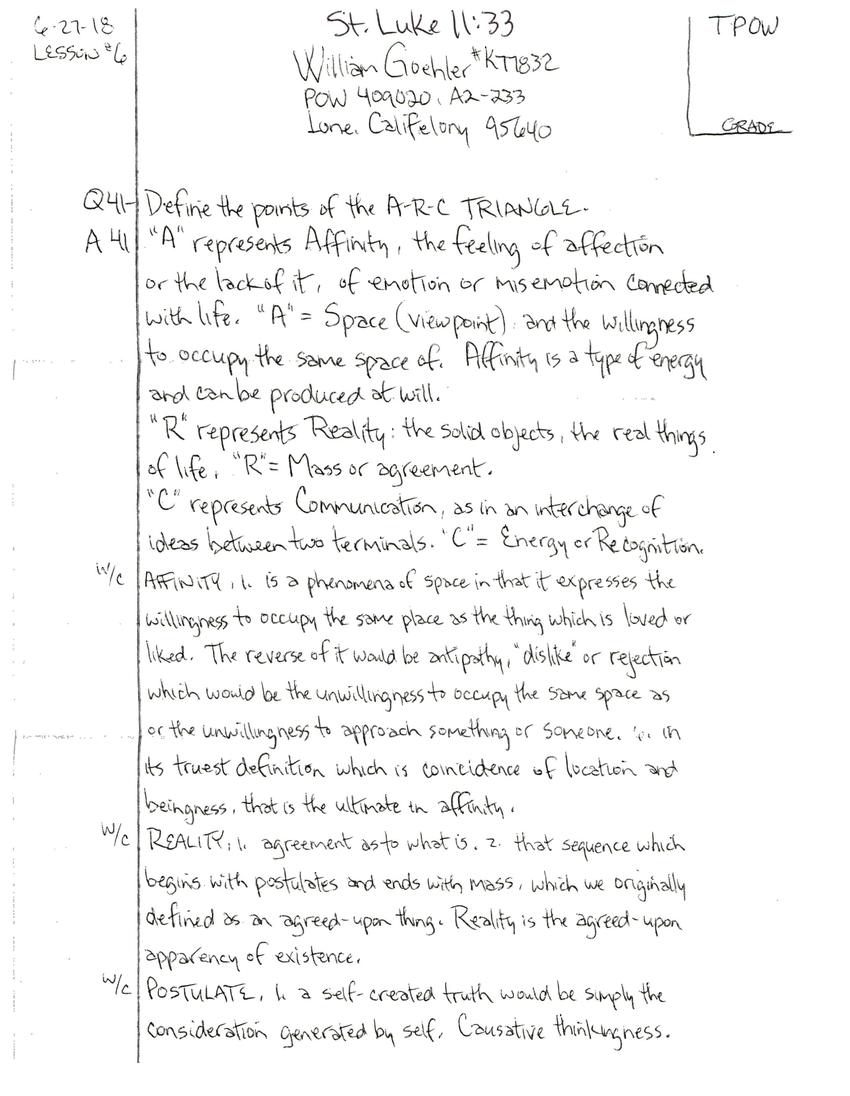 6-27-18
LESSON #6
St. Luke 11:33
William Goehler #KT7832
POW 409020, A2-233
Ione, Califelony 95640
TPOW
GRADE
Q41- Define the points of the A-R-C TRIANGLE.
A 41 "A" represents Affinity, the feeling of affection
or the lack of it, of emotion or misemotion connected
with life. "A" = Space (viewpoint) and the willingness
to occupy the same space of. Affinity is a type of energy
and can be produced at will.
"R" represents Reality: the solid objects, the real things
of life. "R" = Mass or agreement.
"C" represents Communication, as in an interchange of
ideas between two terminals. "C" = Energy or Recognition.
w/c AFFINITY, 1. is a phenomena of space in that it expresses the
willingness to occupy the same place as the thing which is loved or
liked. The reverse of it would be antipathy, "dislike" or rejection
which would be the unwillingness to occupy the same space as
or the unwillingness to approach something or someone. in
its truest definition which is coincidence of location and
beingness, that is the ultimate in affinity.
w/c REALITY, 1. agreement as to what is. 2. that sequence which
begins with postulates and ends with mass, which we originally
defined as an agreed-upon thing. Reality is the agreed-upon
apparency of existence.
w/c POSTULATE, 1. a self-created truth would be simply the
consideration generated by self. Causative thinkingness.